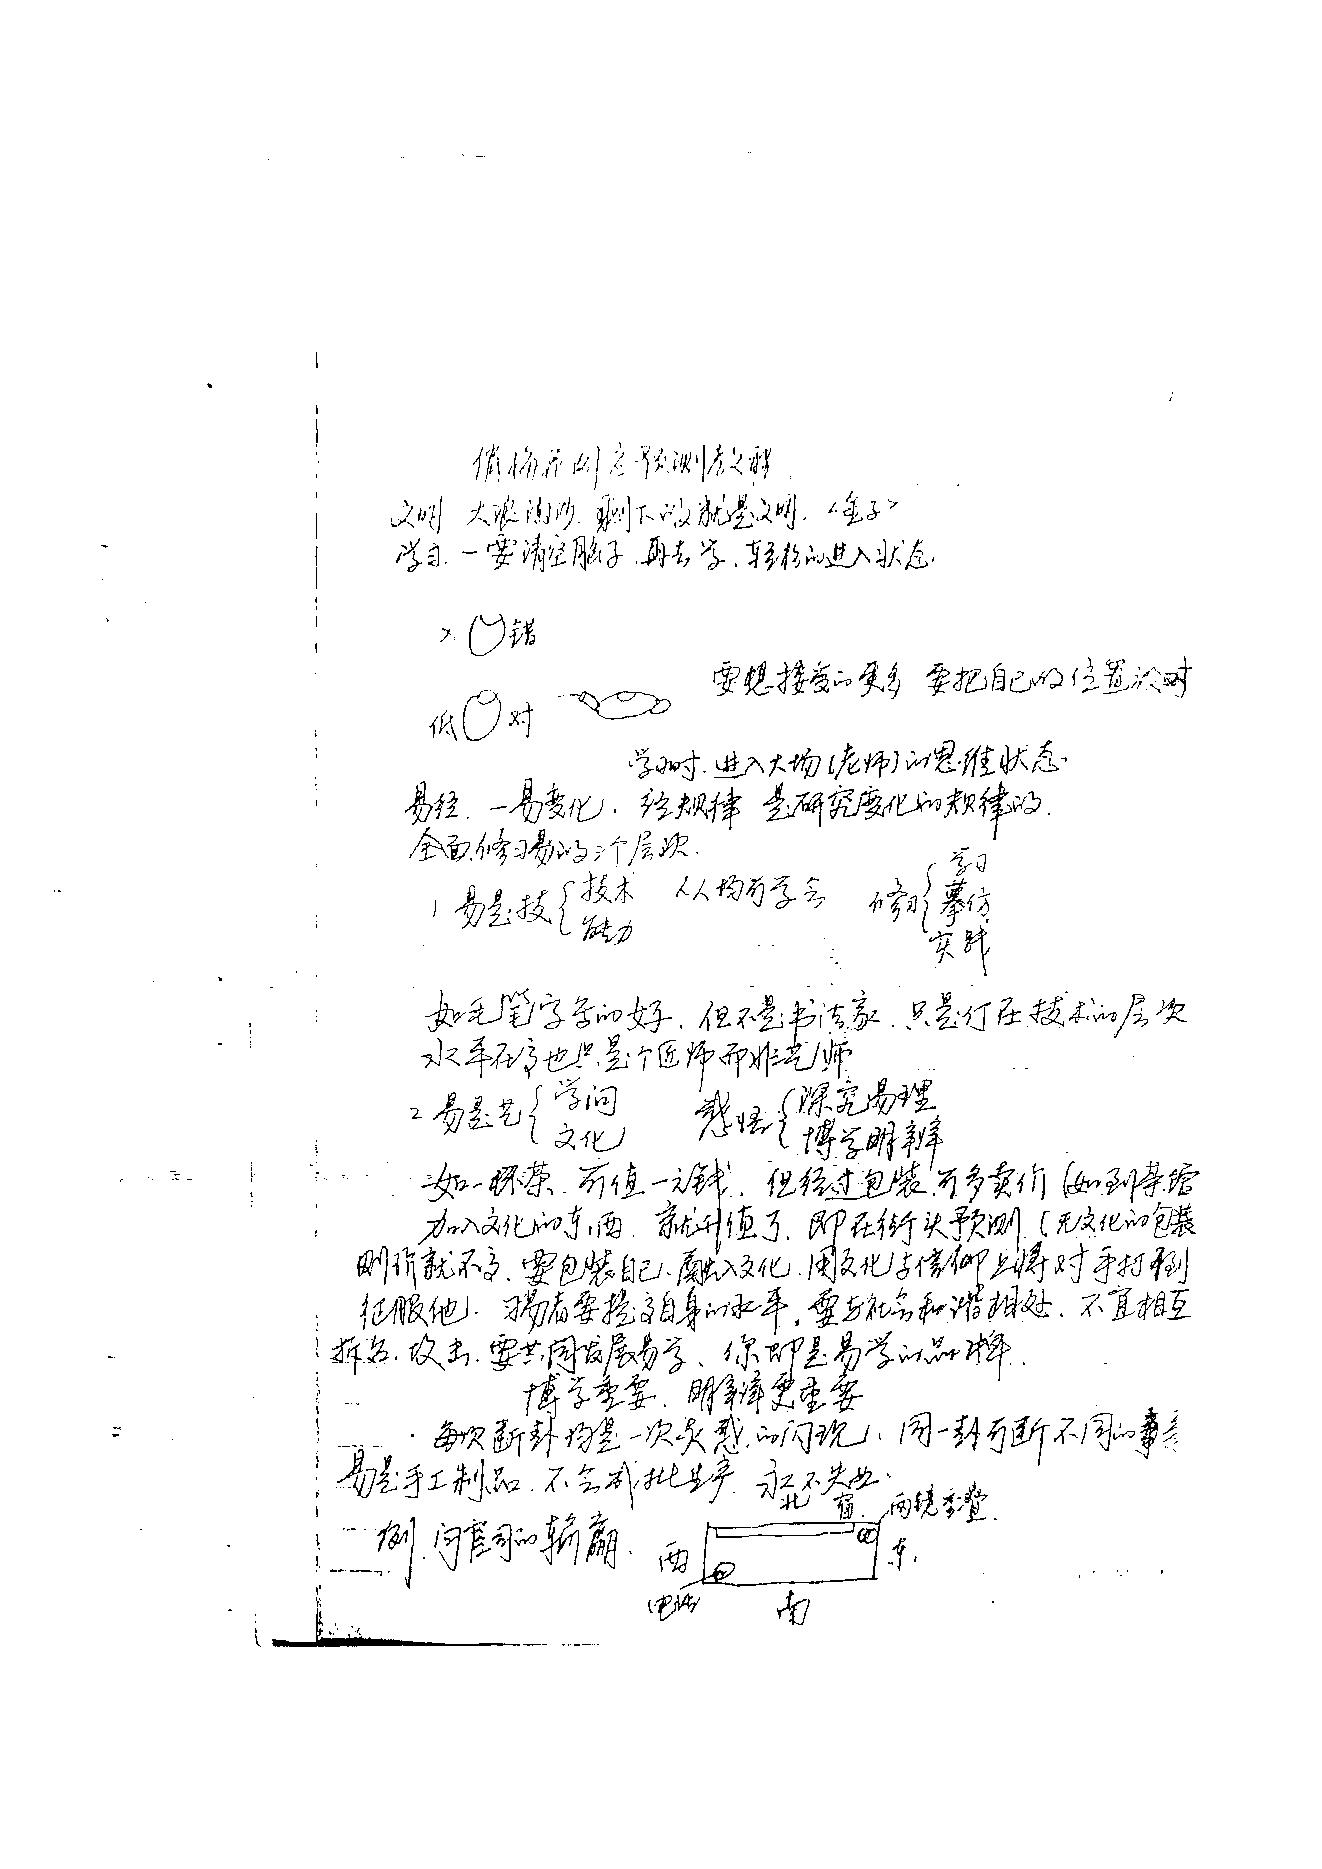 预测教程
文明 大浪淘沙.剩下的就是文明.<金子>
学习.一要清空脑子.再去学.轻松的进入状态.
2. 错
要想接受的更多 要把自己的位置
低 对
学习时.进入大场(老师)的思维状态.
易经.一易变化.经规律 是研究变化的规律的.
全面修习易的三个层次.
1 易是技 { 技术 能力 人人均可学会 修习 { 学习 摹仿 实践
如毛笔字写的好.但不是书法家.只是停在技术的层次
水平在高也只是个匠师而非艺师
2 易是艺 { 学问 文化 感悟 { 探究易理 博学明辨
如一杯茶.可值一元钱.但经过包装.可多卖价(如到茶馆
加入文化的东西.就升值了.即在街头预测.(无文化的包装
则价就不高.要包装自己.融入文化.用文化与信仰上将对手打倒
征服他.习易者要提高自身的水平.要与社会和谐相处.不宜相互
拆台.攻击.要共同发展易学.你即是易学的品牌.
博学重要.明辨更重要
每次断卦均是一次灵感的闪现.同一卦可断不同的事
易是手工制品.不会成批生产.永不失业.
北 窗 两镜
例.问官司的输赢.
西 东.
电话 南